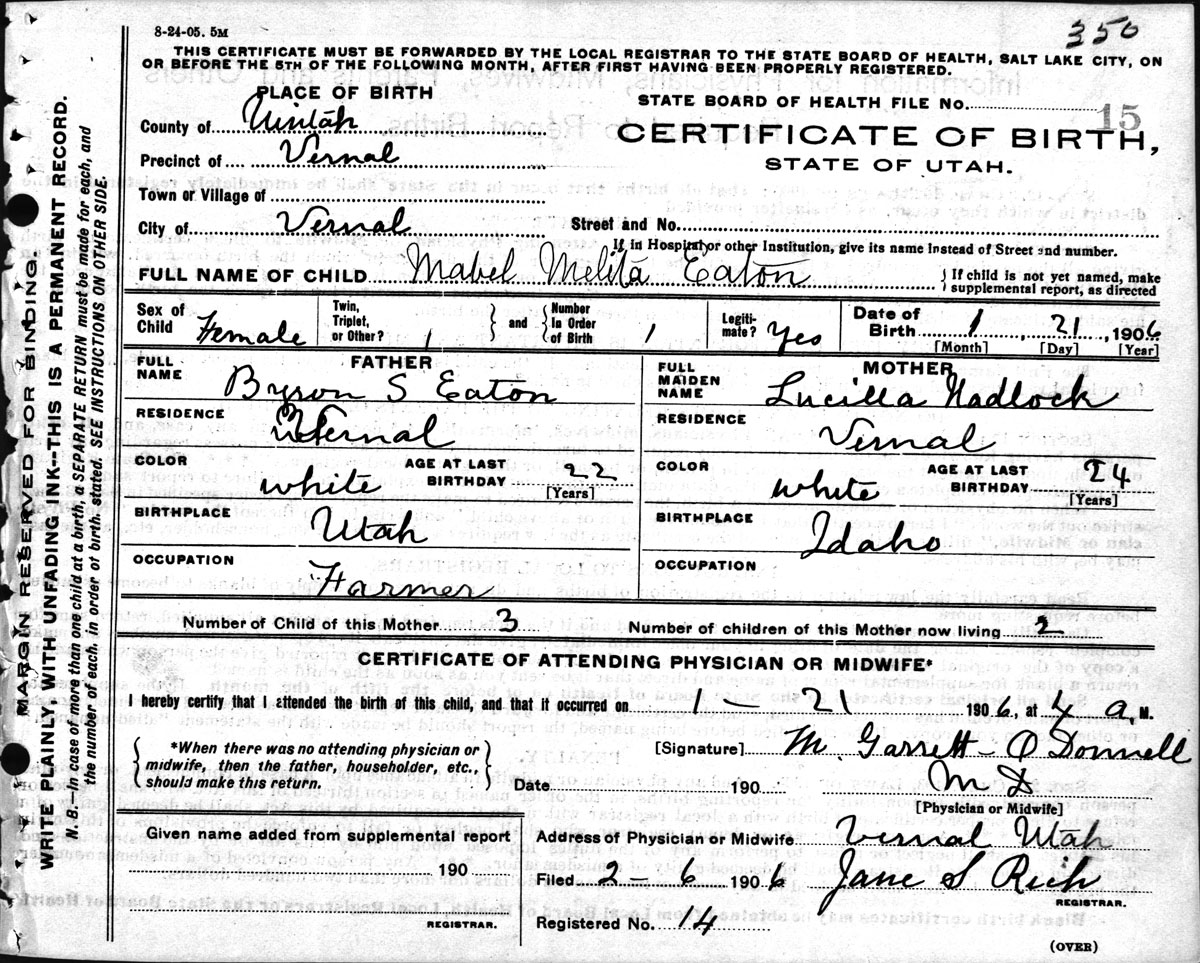 8-24-05. 5M
350
THIS CERTIFICATE MUST BE FORWARDED BY THE LOCAL REGISTRAR TO THE STATE BOARD OF HEALTH, SALT LAKE CITY, ON
OR BEFORE THE 5TH OF THE FOLLOWING MONTH, AFTER FIRST HAVING BEEN PROPERLY REGISTERED.
PLACE OF BIRTH
STATE BOARD OF HEALTH FILE NO. 15
County of Uintah
CERTIFICATE OF BIRTH,
Precinct of Vernal
STATE OF UTAH.
Town or Village of
City of Vernal Street and No.
If in Hospital or other Institution, give its name instead of Street and number.
FULL NAME OF CHILD Mabel Melita Eaton
If child is not yet named, make
supplemental report, as directed
Sex of Child Female
Twin, Triplet, or Other? 1 and Number In Order of Birth 1
Legitimate? Yes
Date of Birth 1 21, 1906
[Month] [Day] [Year]
FATHER
FULL NAME Byron S Eaton
RESIDENCE Vernal
COLOR white AGE AT LAST BIRTHDAY 22
[Years]
BIRTHPLACE Utah
OCCUPATION Farmer
MOTHER
FULL MAIDEN NAME Lucilla Hadlock
RESIDENCE Vernal
COLOR white AGE AT LAST BIRTHDAY 24
[Years]
BIRTHPLACE Idaho
OCCUPATION
Number of Child of this Mother 3 Number of children of this Mother now living 2
CERTIFICATE OF ATTENDING PHYSICIAN OR MIDWIFE*
I hereby certify that I attended the birth of this child, and that it occurred on 1 - 21 1906, at 4 a. M.
*When there was no attending physician or
midwife, then the father, householder, etc.,
should make this return.
[Signature] M. Garrett-O'Donnell
Date 190 M D
[Physician or Midwife]
Given name added from supplemental report
190
REGISTRAR.
Address of Physician or Midwife Vernal Utah
Filed 2-6 1906 Jane S Rich
REGISTRAR.
Registered No. 14
(OVER)
MARGIN RESERVED FOR BINDING.
WRITE PLAINLY, WITH UNFADING INK--THIS IS A PERMANENT RECORD.
N. B.—In case of more than one child at a birth, a SEPARATE RETURN must be made for each, and
the number of each, in order of birth, stated. SEE INSTRUCTIONS ON OTHER SIDE.